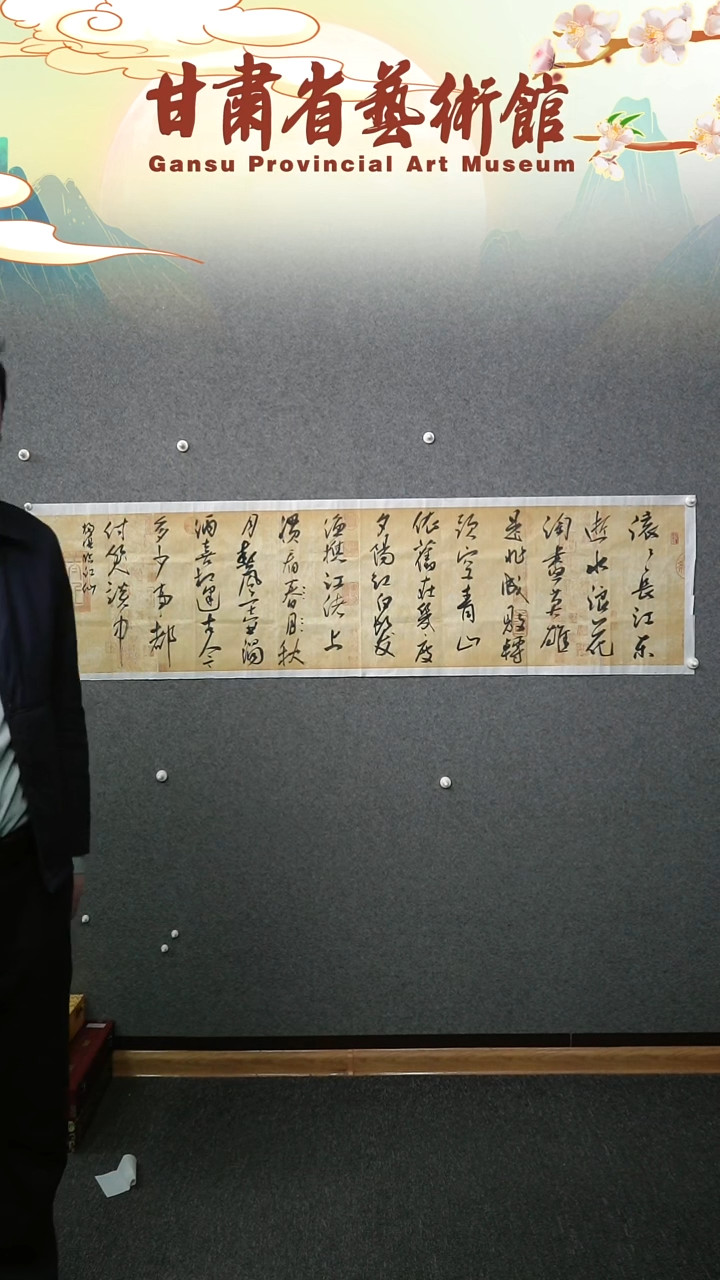 甘肅省藝術館
Gansu Provincial Art Museum
滚〻長江东
逝水浪花
淘盡英雄
是非成敗轉
頭空青山
依舊在幾度
夕陽紅白髮
漁樵江渚上
慣看春月秋
月春風一壺濁
酒喜相逢古今
多少事都
付笑談中
杨慎临江仙